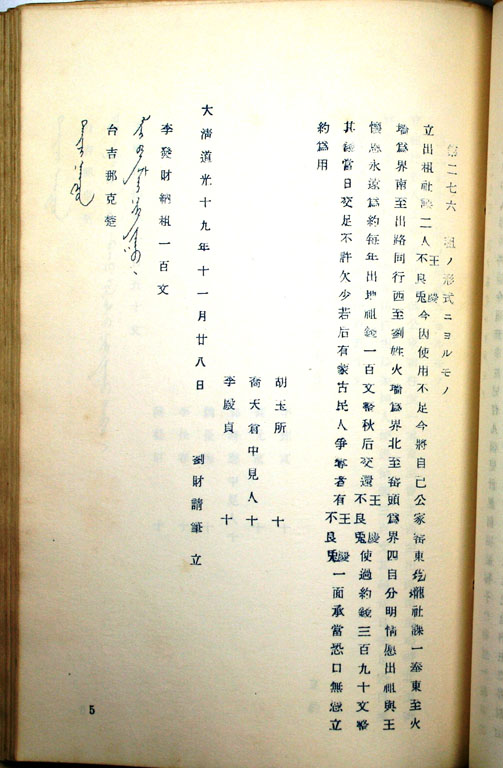 第二七六 租ノ形式ニヨルモノ
立出租社課二人王慶不良兎今因使用不足今將自己公家窑東圪壠社課一奉東至火
墻爲界南至出路同行西至劉姓火墻爲界北至窑頭爲界四自分明情愿出租與王
懷恩永遠爲約每年出地租錢一百文秋后交還王慶不良兎使過約錢三百九十文
其錢當日交足不許欠少若后有蒙古民人爭奪者有王慶不良兎一面承當恐口無憑立
約爲用
胡玉所 十
喬天富中見人十
李殿貞 十
大淸道光十九年十一月廿八日 劉財請筆 立
李發財納租一百文
台吉那克楚
5